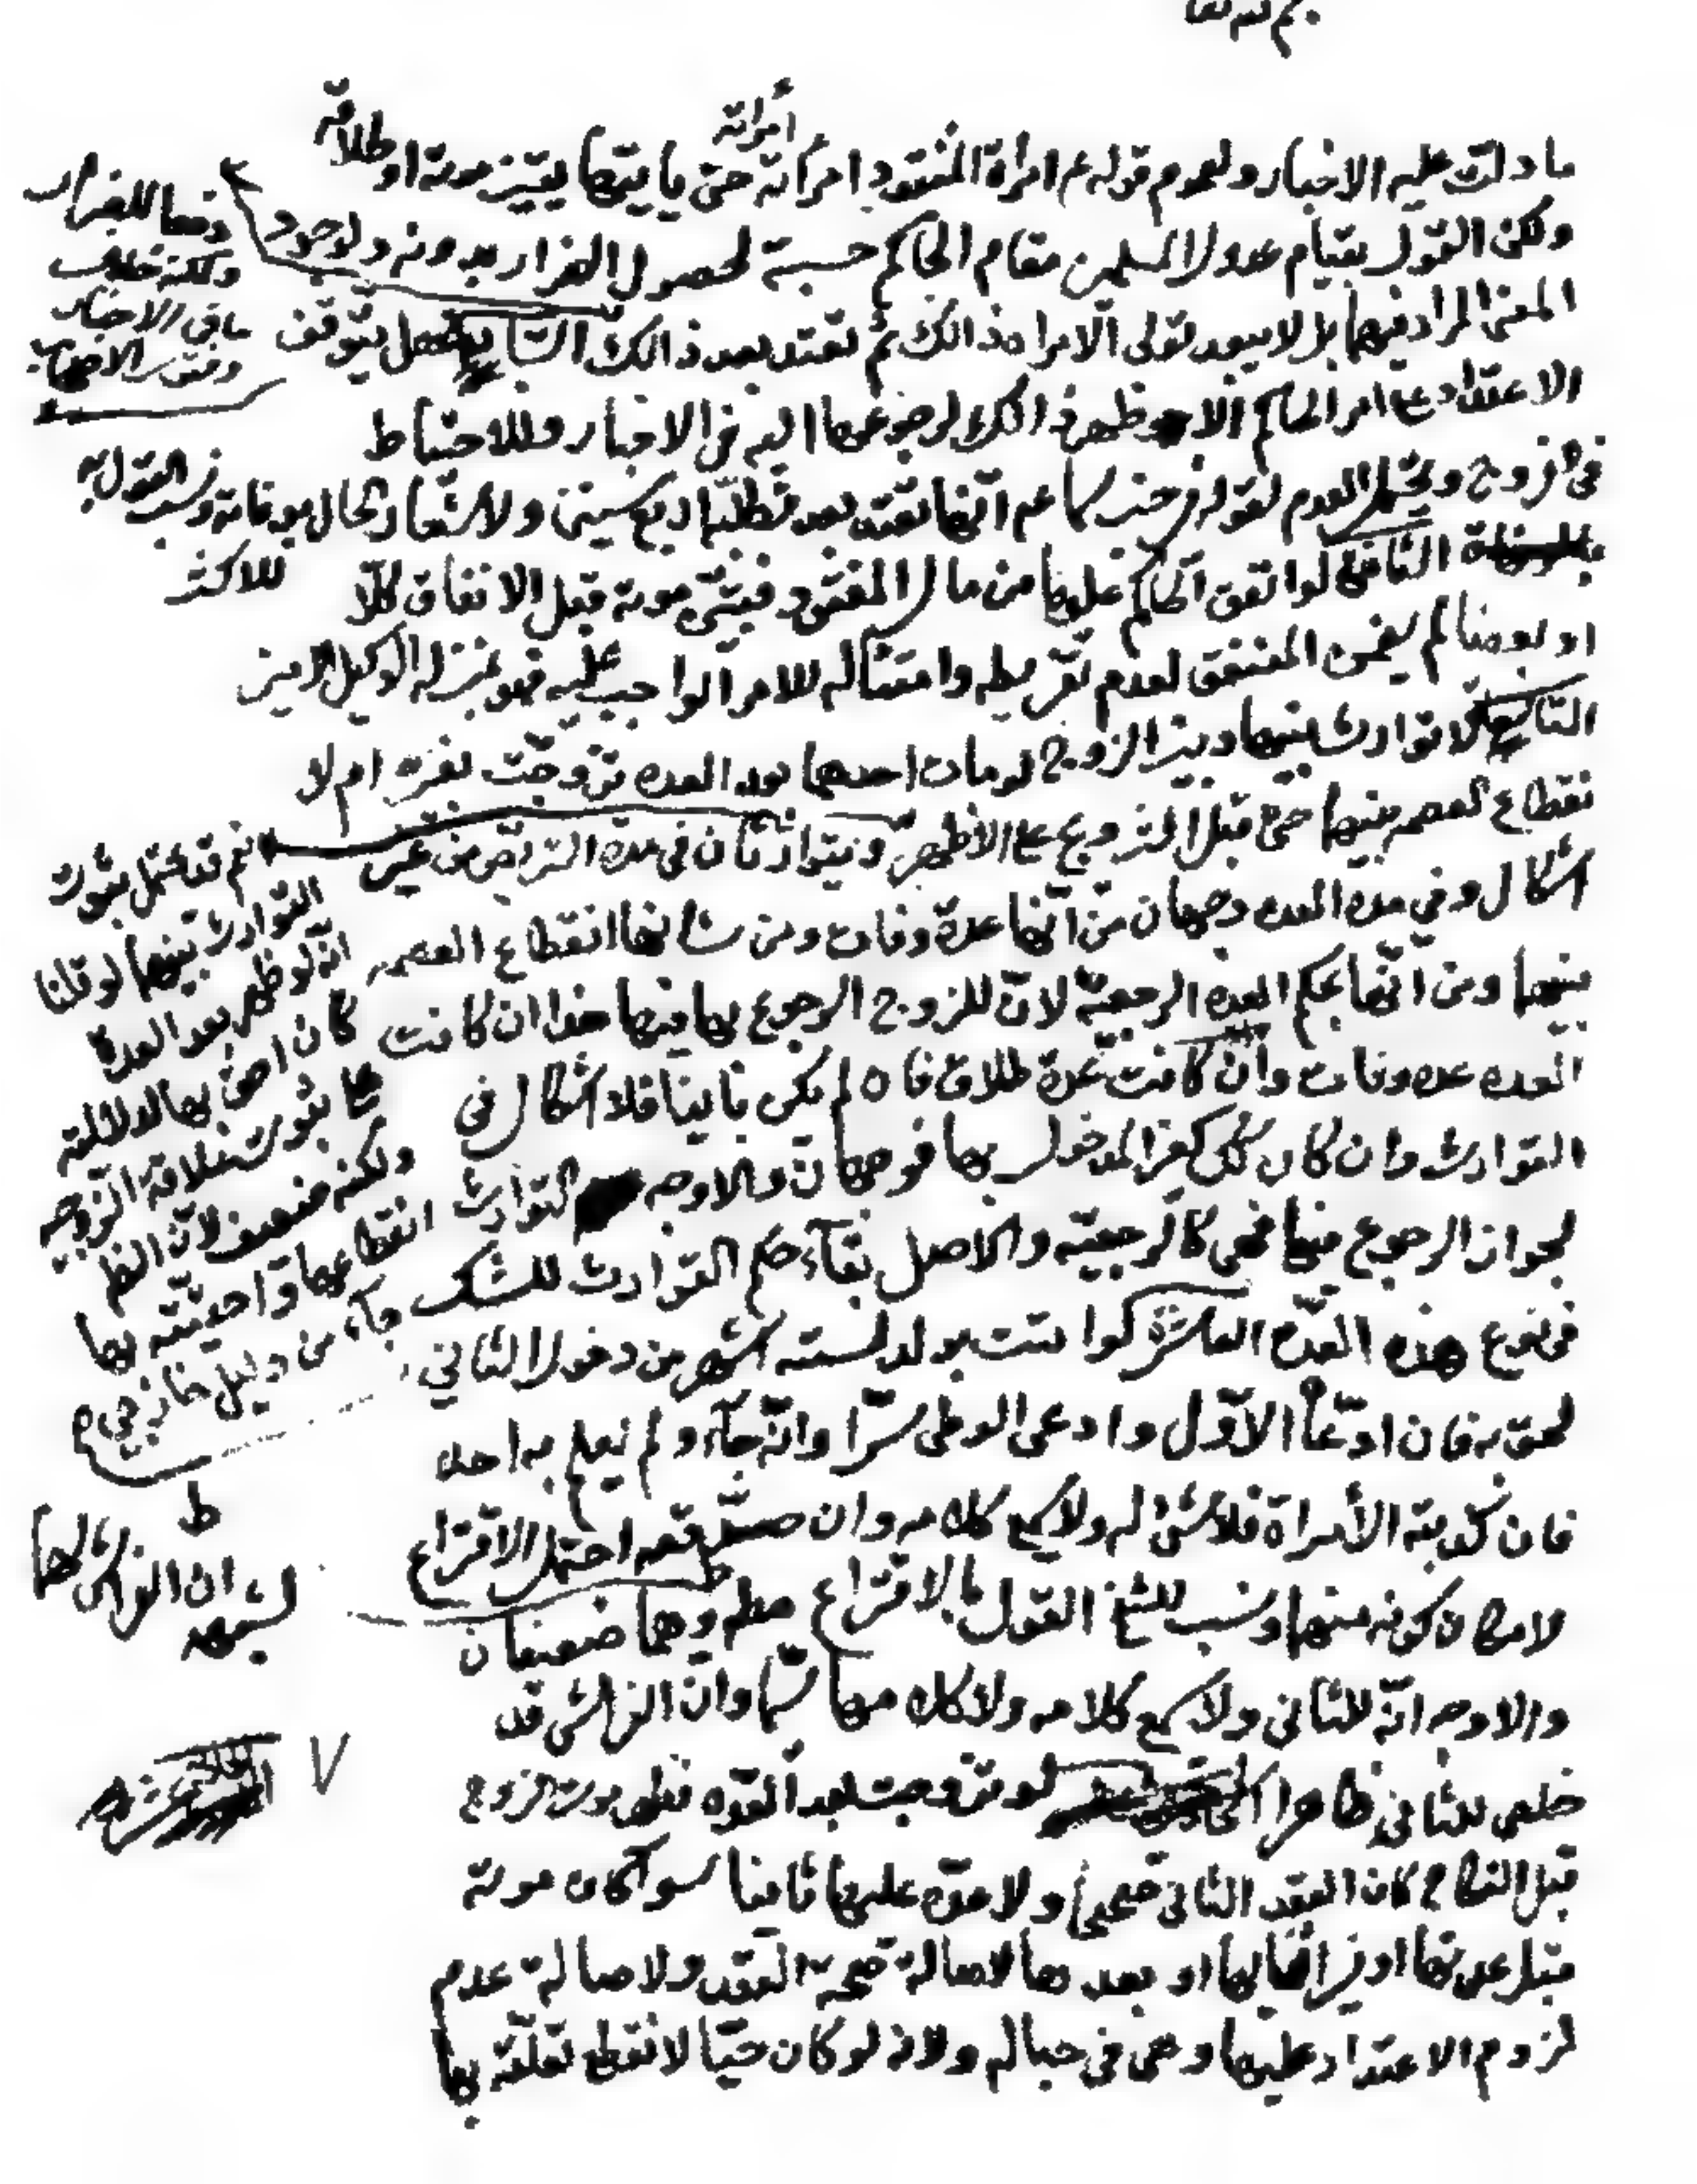 بسم الله تعا
امراته
ما دلت عليه الاخبار ولعموم قوله ع امراة المفقود امراته حتى ياتيها يقين موته او طلاقه
ولكن القول بقيام عدول المسلمين مقام الحاكم حسبة لحصول الضرار بدونه ولوجود
المعنى المراد فيهما بل لا يبعد تولى الامراه ذالك ثم تعتد بعد ذالك السابع هل يتوقف
الاعتداد على امر الحاكم الاظهر ذالك لرجوعها اليه في الاخبار وللاحتياط
في الفروج ويحتمل العدم لقوله في خبر سماعه انها تعتد بعد تطلبه اربع سنين ولاشعار الحال بوفاته ونسب القول به
للاكثر
الثامن لو انفق الحاكم عليها من مال المفقود فتبين موته قبل الانفاق كلا
او بعضا لم يضمن المنفق لعدم تفريطه وامتثاله للامر الواجب عليه فهو بمنزله الوكيل الامين
التاسع لا توارث بينها وبين الزوج لو مات احدهما بعد العده تزوجت بغيره ام لا
نقطاع العصمه بينهما حتى قبل التزويج على الاظهر ويتوارثان في مدة التربص من غير
اشكال وفي مده العده وجهان من انها عدة وفات ومن شانها انقطاع العصمه
بينهما ومن انها بحكم العده الرجعية لان للزوج الرجوع بها فيها هذا ان كانت
العده عده وفات وان كانت عدة طلاق فان لم يكن باينا فلا اشكال في
التوارث وان كان كغير المدخول بها فوجهان والاوجه التوارث
لجواز الرجوع فيها فهى كالرجعية والاصل بقآء حكم التوارث للشك
في نوع هذه العدة العاشر لو اتت بولد لسته اشهر من دخول الثاني
لحق به فان ادعاه الاول وادعى الوطى سرا وانه جآء ولم يعلم به احد
فان كذبته الأمراة فلا شئ له ولا يسمع كلامه وان صدقته احتمل الاقتراع
لامكان كونه منهما ونسب للشيخ القول بالاقتراع مطر وهما ضعيفان
والاوجه انه للثاني ولا يسمع كلامه ولا كلامها سيما وان الفراش قد
خلص للثاني ظاهرا لو تزوجت بعد العده فظهر موت الزوج
قبل النكاح كان العقد الثاني صحيحا ولا عده عليها ثانيا سوآء كان موته
قبل عدتها او في اثنائها او بعدها لاصالة صحة العقد ولاصالة عدم
لزوم الاعتداد عليها وهى في حباله ولانه لو كان حيا لانقطع تعلقه بها
دفعا للضرار
ولكنه خلاف
ما في الاخبار
وفتوى الاصحاب
نعم قد يحتمل ثبوت
التوارث بينهما لو قلنا
انه لو ظهر بعد العدة
كان احق بها لدلالته
على ثبوت علاقة الزوجيه
ولكنه ضعيف لان الظ
انقطاعها واحقيته بها
جآء من دليل خارجي
ط
لشبهه ان الفراش لهما
الحادي عشر